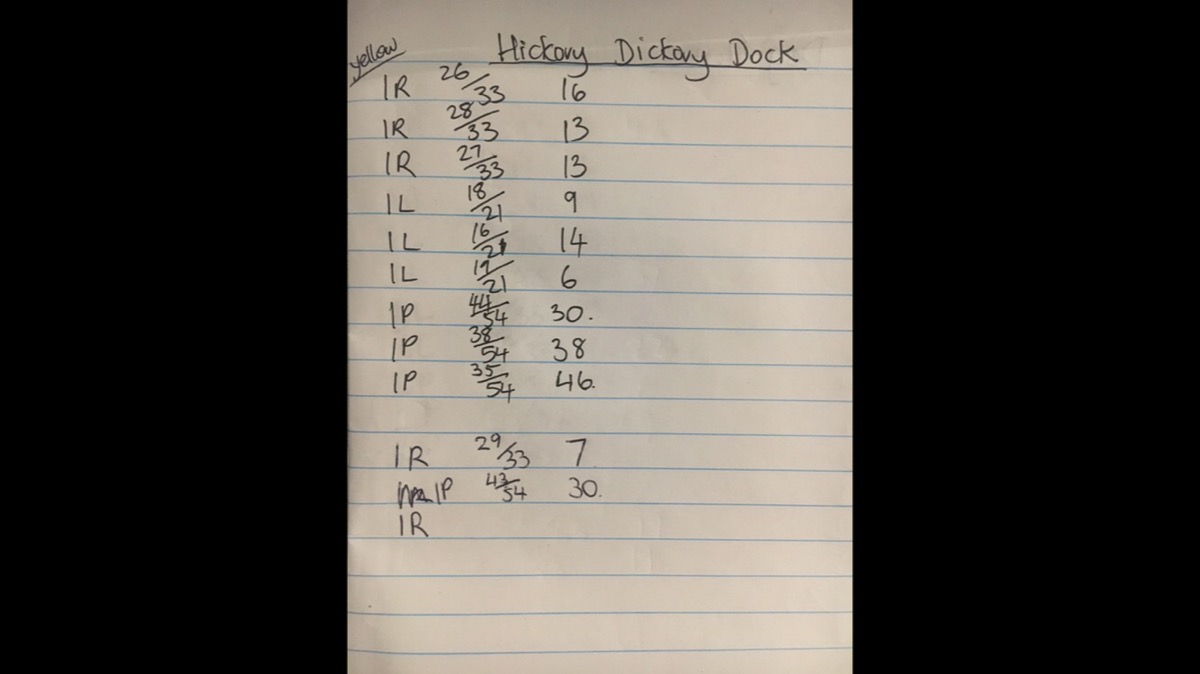 yellow
Hickory Dickory Dock
IR 26/33 16
IR 28/33 13
IR 27/33 13
IL 18/21 9
IL 16/21 14
IL 19/21 6
IP 44/54 30.
IP 38/54 38
IP 35/54 46.
IR 29/33 7
IP 43/54 30.
IR